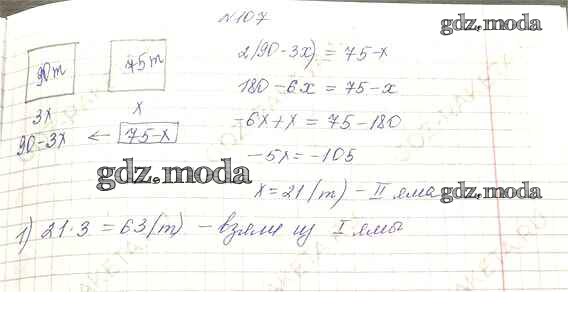 №107
gdz.moda
90т 75т
3х х
90-3х ← 75-х
2(90-3х) = 75-х
180-6х = 75-х
-6х+х = 75-180
-5х = -105
gdz.moda
х = 21 (т) - II яма
gdz.moda
1) 21·3 = 63(т) - взяли из I ямы